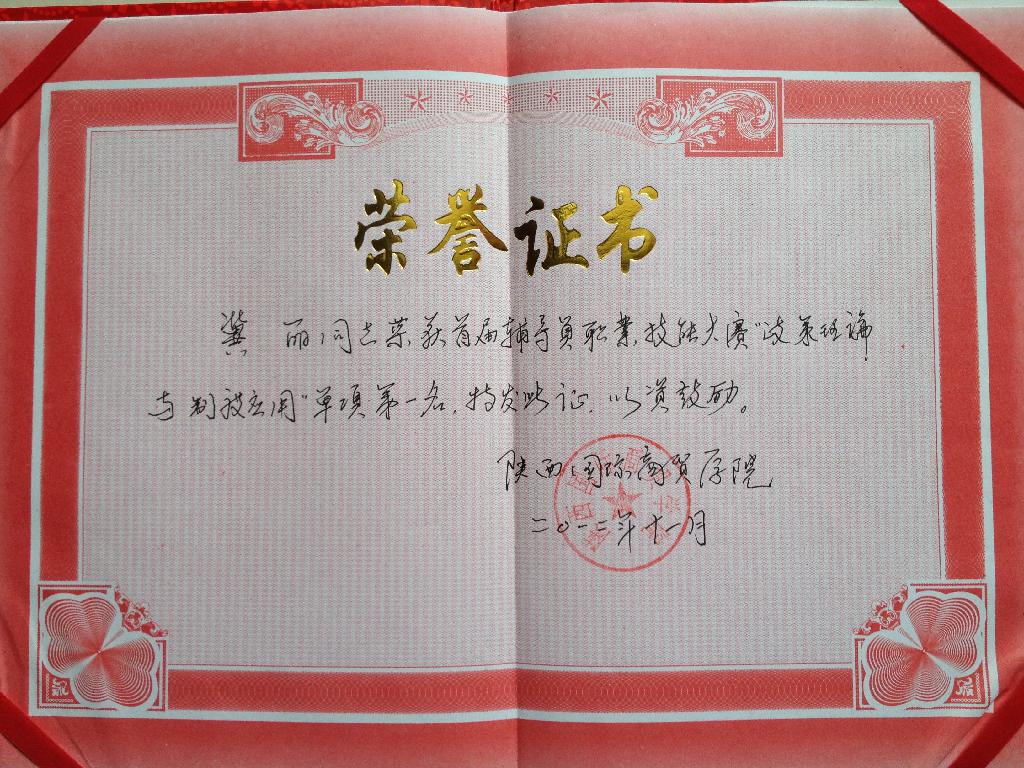 荣誉证书
龚 丽同志荣获首届辅导员职业技能大赛“政策理论
与制度应用”单项第一名,特发此证,以资鼓励。
陕西国际商贸学院
二〇一二年十一月